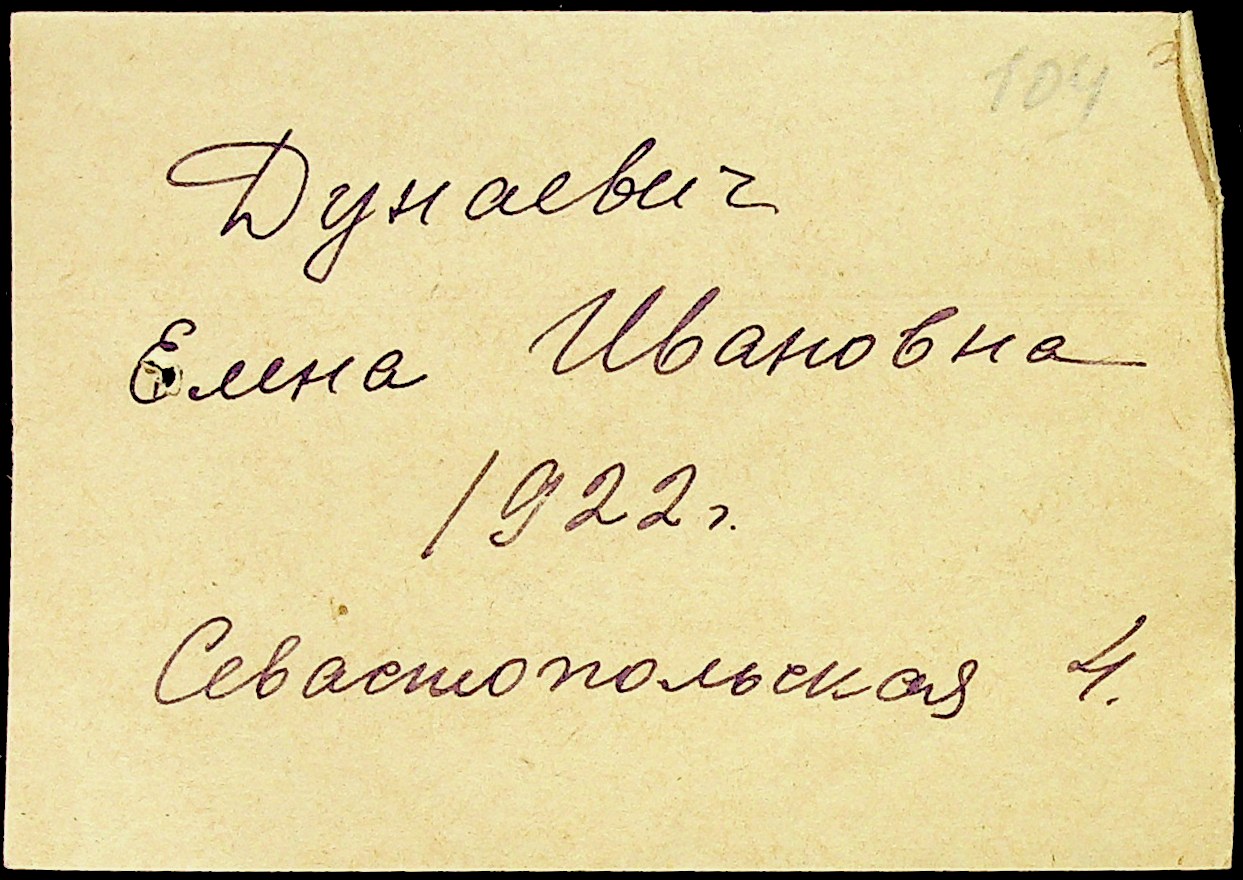 104
Дунаевич
Елена Ивановна
1922г.
Севастопольская 4.